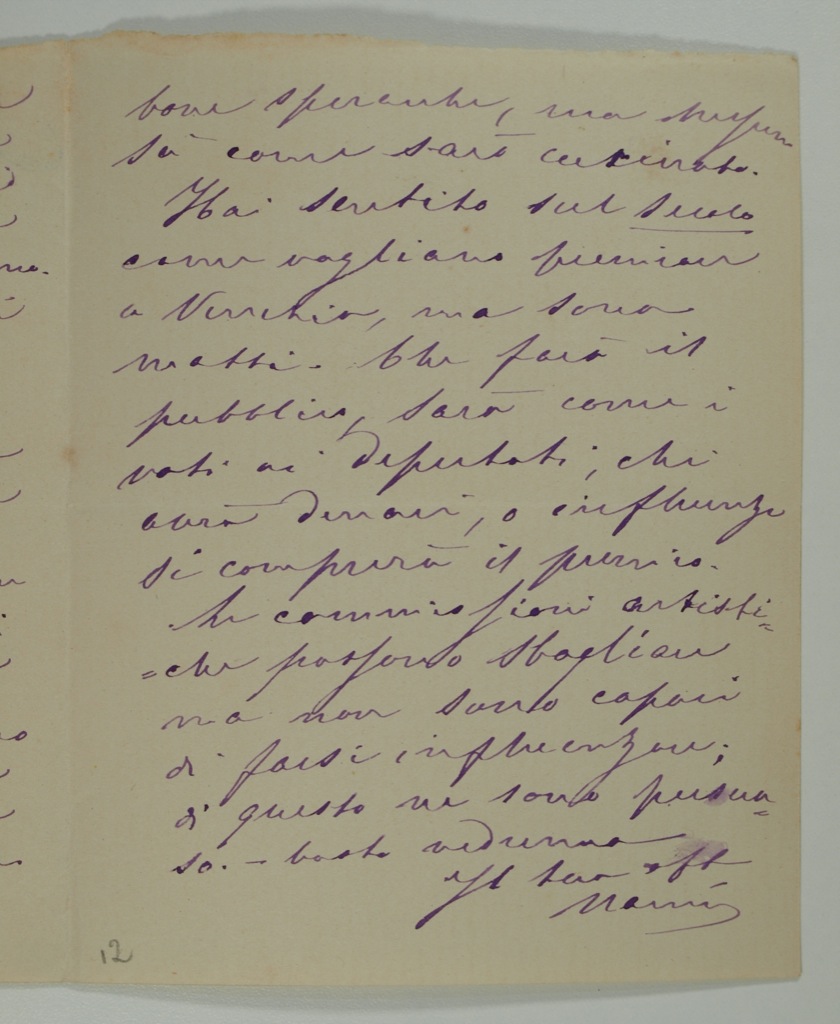 bone speranze, ma nessun
sà come sarà cucinato.
Hai sentito sul Secolo
come vogliano premiare
a Venezia, ma sono
matti. Che farà il
pubblico, sarà come i
voti ai deputati, chi
avrà denari, o influenze
si comprerà il premio.
Le commissioni artisti=
=che possono sbagliare
ma non sono capaci
di farsi influenzare;
di questo ne sono persua=
so. – basta vedremo
Il tuo aff
12